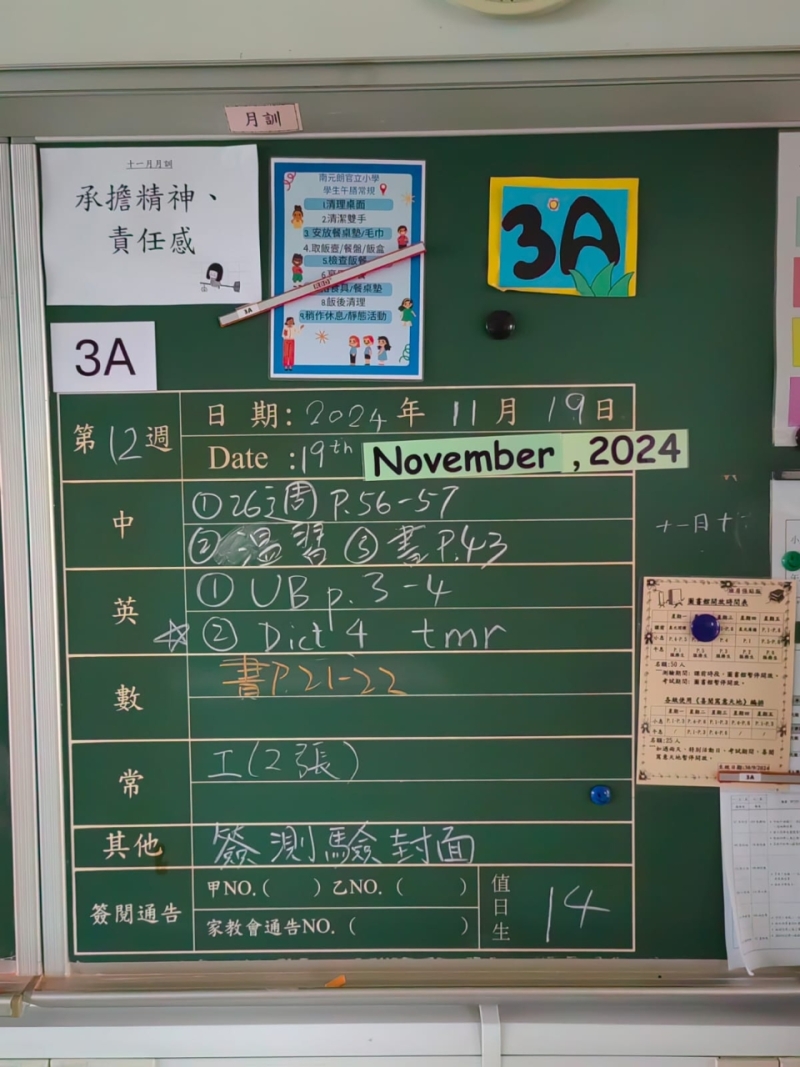 月訓
十一月月訓
承擔精神、
責任感
南元朗官立小學
學生午膳常規
1.清理桌面
2.清潔雙手
3.安放餐桌墊/毛巾
4.取飯壺/餐盤/飯盒
5.檢查飯餐
餐具/餐桌墊
8.飯後清理
9.稍作休息/靜態活動
3A
3A
第12週
日期: 2024年 11月 19日
Date :19th November , 2024
中
①26週 P.56-57
②溫習 ③書P.43
英
①UB p. 3-4
☆②Dict 4 tmr
數
書P.21-22
常
工(2張)
其他
簽測驗封面
簽閱通告
甲NO.( ) 乙NO.( )
家教會通告NO.( )
值日生
14
十一月十
圖書館開放時間表
名額:50人
測驗期間:課前時段,圖書館暫停開放。
考試期間:圖書館暫停開放。
名額:25人
3A